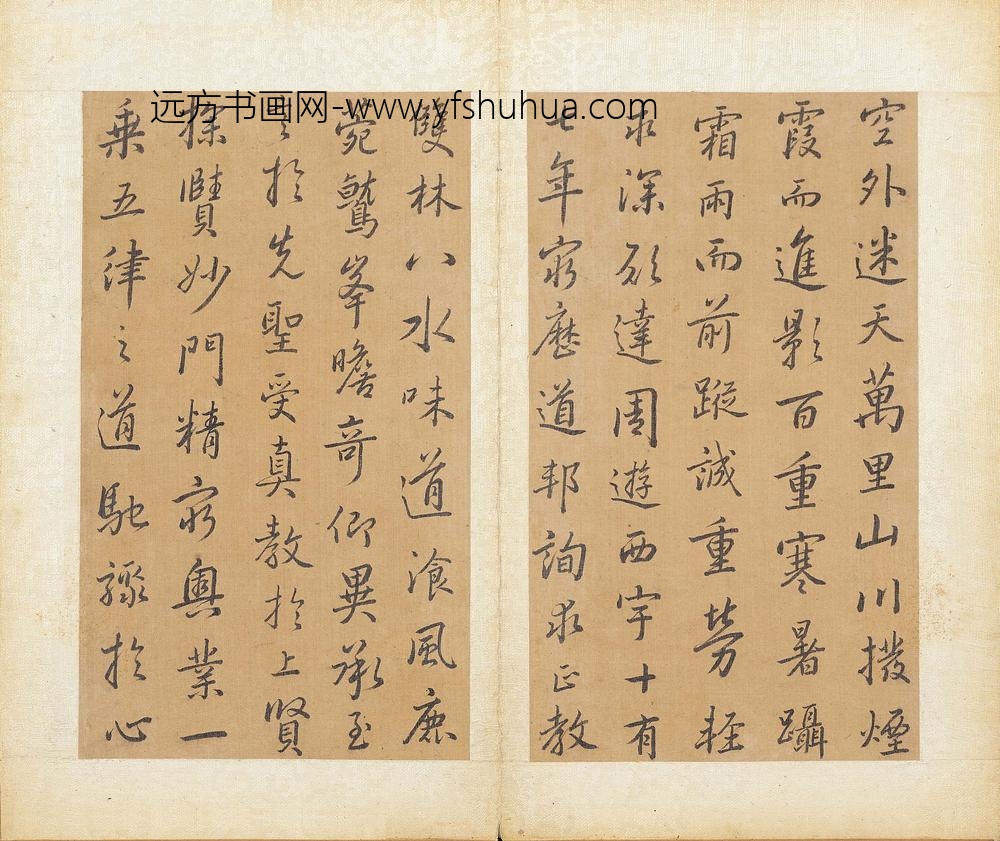 远方书画网-www.yfshuhua.com
空外迷天萬里山川撥煙
霞而進影百重寒暑躡
霜雨而前蹤誠重勞輕
求深願達周遊西宇十有
七年窮歷道邦詢求正教
雙林八水味道飡風鹿
菀鷲峯瞻奇仰異承至
言於先聖受真教於上賢
探賾妙門精窮奧業一
乘五律之道馳驟於心